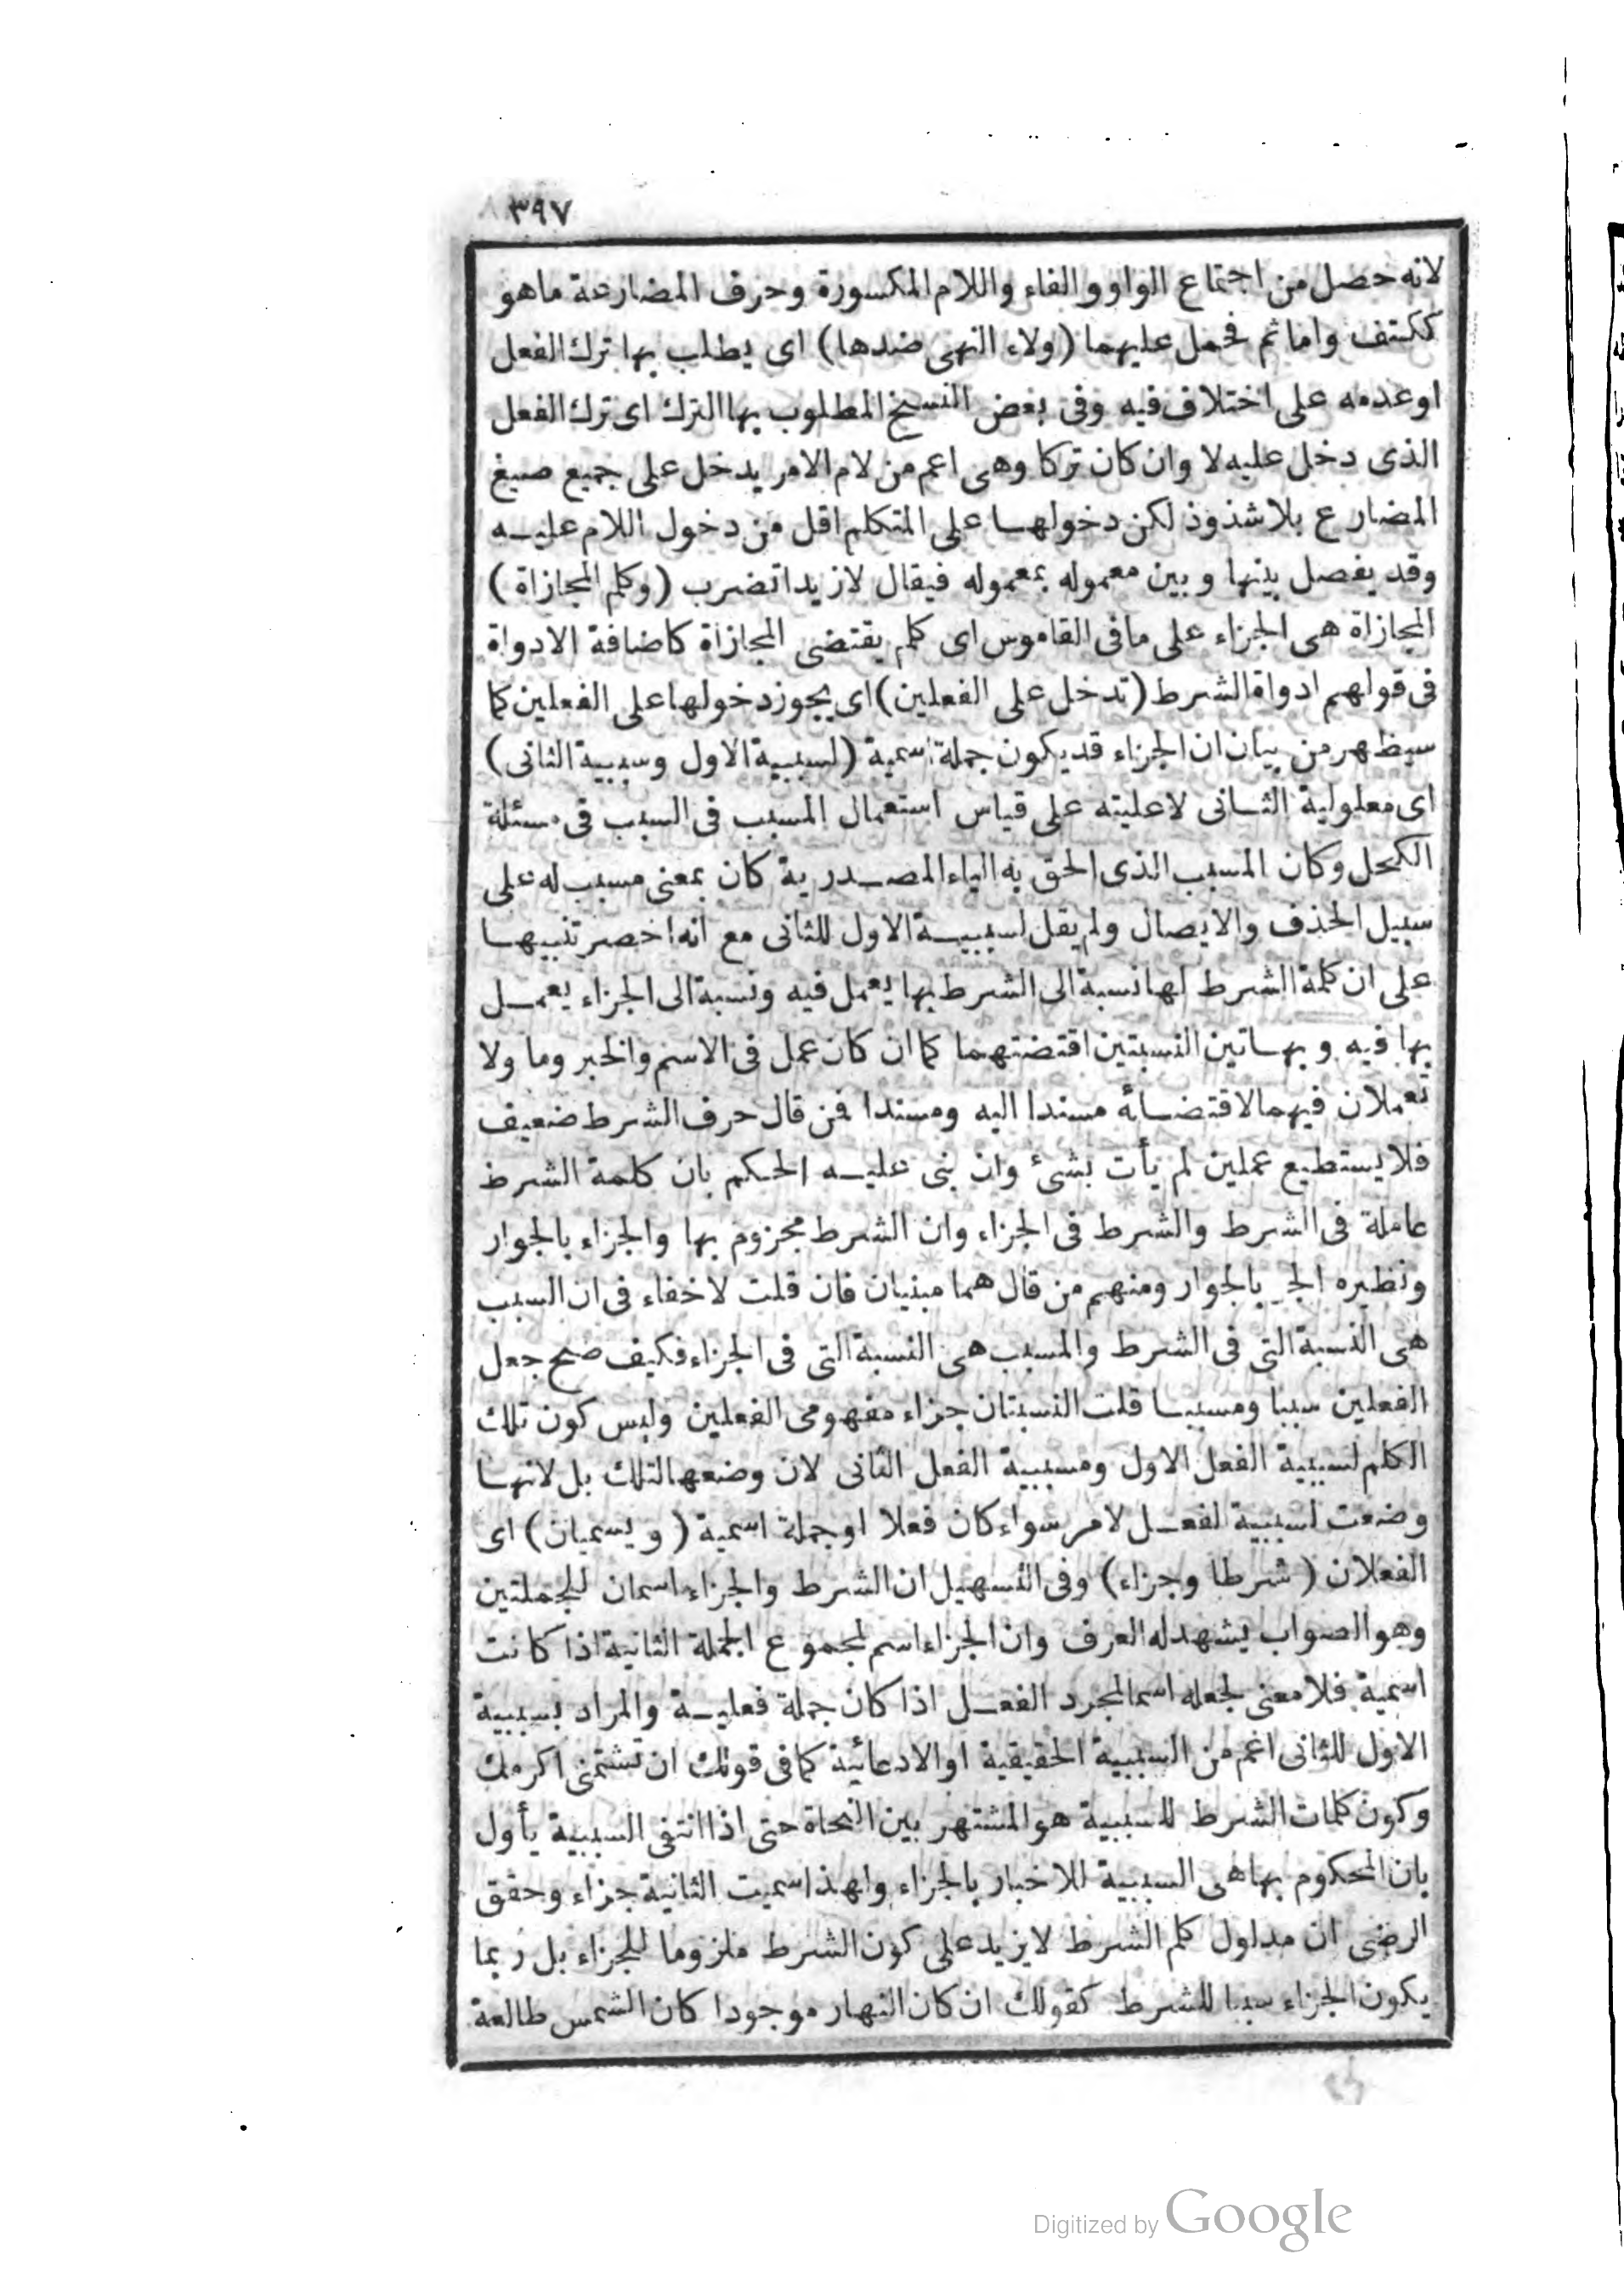 ٣٩٧
لانه حصل من اجتماع الواو والفاء واللام المكسورة وحرف المضارعة ماهو
ككتف واما ثم فحمل عليهما (ولاء النهى ضدها) اى يطلب بها ترك الفعل
اوعدمه على اختلاف فيه وفى بعض النسخ المطلوب بها الترك اى ترك الفعل
الذى دخل عليه لا وان كان تركا وهى اعم من لام الامر يدخل على جميع صيغ
المضارع بلا شذوذ لكن دخولها على المتكلم اقل من دخول اللام عليه
وقد يفصل بينها وبين معموله بمعموله فيقال لا زيدا تضرب (وكلم المجازاة)
المجازاة هى الجزاء على مافى القاموس اى كلم يقتضى المجازاة كاضافة الادواة
فى قولهم ادواة الشرط (تدخل على الفعلين) اى يجوز دخولها على الفعلين كما
سيظهر من بيان ان الجزاء قد يكون جملة اسمية (لسببية الاول وسببية الثانى)
اى معلولية الثانى لاعليته على قياس استعمال المسبب فى السبب فى مسئلة
الكحل وكان المسبب الذى الحق به الياء المصدرية كان بمعنى مسبب له على
سبيل الحذف والايصال ولم يقل لسببية الاول للثانى مع انه اخصر تنبيها
على ان كلمة الشرط لها نسبة الى الشرط بها يعمل فيه ونسبة الى الجزاء يعمل
بها فيه وبهاتين النسبتين اقتضتهما كما ان كان عمل فى الاسم والخبر وما ولا
تعملان فيهما لاقتضائه مسندا اليه ومسندا فمن قال حرف الشرط ضعيف
فلا يستطيع عملين لم يأت بشئ وان بنى عليه الحكم بان كلمة الشرط
عاملة فى الشرط والشرط فى الجزاء وان الشرط مجزوم بها والجزاء بالجوار
ونظيره الجر بالجوار ومنهم من قال هما مبنيان فان قلت لاخفاء فى ان السبب
هى النسبة التى فى الشرط والمسبب هى النسبة التى فى الجزاء فكيف صح جعل
الفعلين سببا ومسببا قلت النسبتان جزاء مفهومى الفعلين وليس كون تلك
الكلم لسببية الفعل الاول ومسببية الفعل الثانى لان وضعها لتلك بل لانها
وضعت لسببية لفعل لامر سواء كان فعلا اوجملة اسمية (ويسميان) اى
الفعلان (شرطا وجزاء) وفى التسهيل ان الشرط والجزاء اسمان للجملتين
وهو الصواب يشهد له العرف وان الجزاء اسم لمجموع الجملة الثانية اذا كانت
اسمية فلا معنى لجعله اسما لمجرد الفعل اذا كان جملة فعلية والمراد بسببية
الاول للثانى اعم من السببية الحقيقية اوالادعائية كما فى قولك ان تشتمنى اكرمك
وكون كلمات الشرط للسببية هو المشتهر بين النحاة حتى اذا انتفى السببية يأول
بان المحكوم بها هى السببية للاخبار بالجزاء ولهذا سميت الثانية جزاء وحقق
الرضى ان مدلول كلم الشرط لايزيد على كون الشرط ملزوما للجزاء بل ربما
يكون الجزاء سببا للشرط كقولك ان كان النهار موجودا كان الشمس طالعة
Digitized by Google